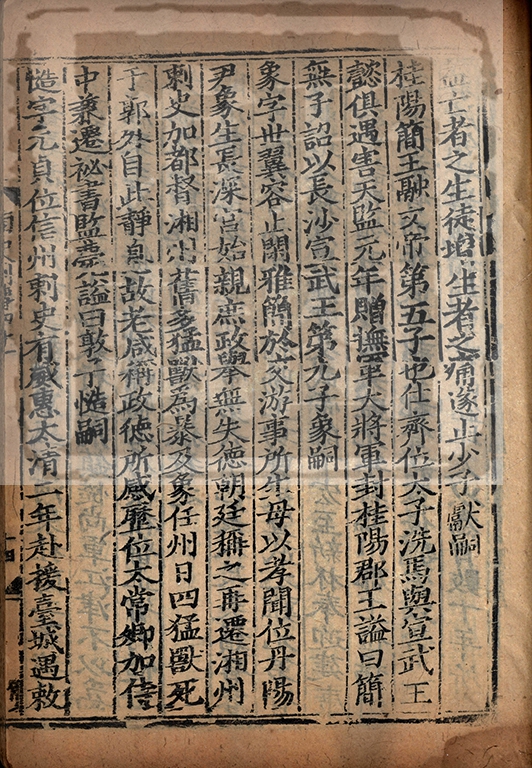 亡者之生徒增生者之痛遂止少子獻嗣
桂陽簡王融文帝第五子也仕齊位太子洗馬與宣武王
懿俱遇害天監元年贈撫軍大將軍封桂陽郡王謚曰簡
無子詔以長沙宣武王第九子象嗣
象字世翼容止閑雅簡於交游事所生母以孝聞位丹陽
尹象生長深宮始親庶政舉無失德朝廷稱之再遷湘州
刺史加都督湘州舊多猛獸為暴及象任州日四猛獸死
于郭外自此靜息故老咸稱政德所感歷位太常卿加侍
中兼遷祕書監薨謚曰敦子慥嗣
慥字元貞位信州刺史有威惠太清二年赴援臺城遇敕